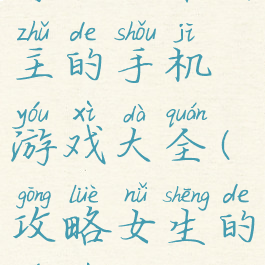 zhǔ de shǒu jī
主的手机
yóu xì dà quán
游戏大全(
gōng lüè nǚ shēng de
攻略女生的